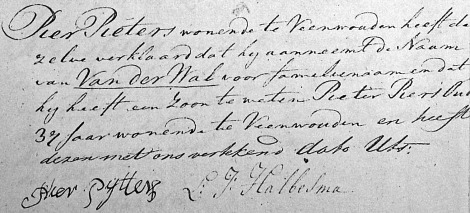 Pier Pieters wonende te Veenwouden heeft de
zelve verklaard dat hy aanneemt de Naam
van Van der Wal voor familienaam en dat
hy heeft een Zoon te weten Pieter Piers Oud
37 Jaar wonende te Veenwouden en heeft
dezen met ons dato Uts:
Pier Pytters L: J: Halbesma